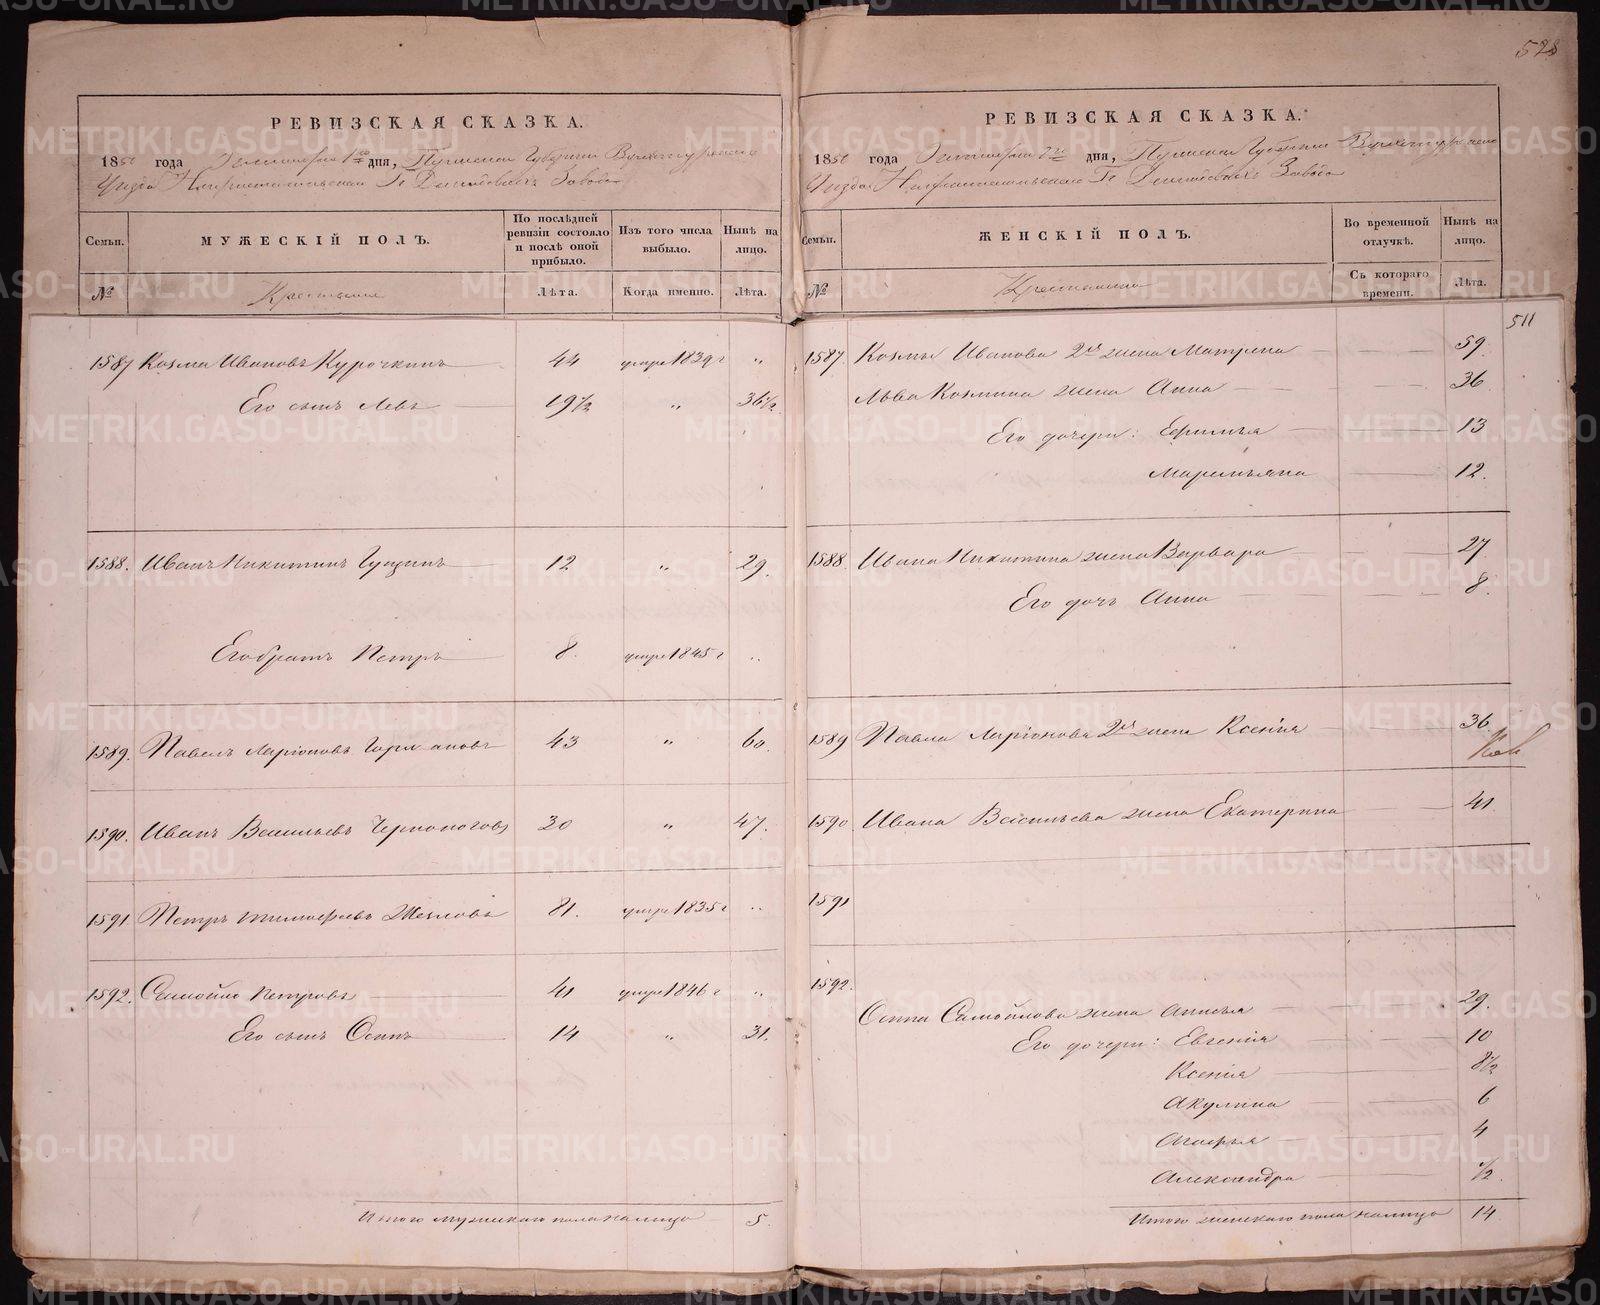 528
РЕВИЗСКАЯ СКАЗКА.
1850 года дня, Пермской Губернии Верхотурскаго
Уѣзда Нижнетагильскаго Гг. Демидовыхъ Завода
Семьи.
МУЖЕСКІЙ ПОЛЪ.
По послѣдней ревизіи состояло и послѣ оной прибыло.
Изъ того числа выбыло.
Нынѣ на лицо.
№
Крестьяне
Лѣта.
Когда именно.
Лѣта.
1587 Козма Ивановъ Курочкинъ 44 умре 1839 г „
Его сынъ Левъ 19 1/2 „ 36 1/2
1588. Иванъ Никитинъ Гущинъ 12 „ 29.
Его братъ Петръ 8. умре 1845 г „
1589. Павелъ Ларіоновъ 43 „ 60.
1590. Иванъ Васильевъ Черноноговъ 30 „ 47.
1591. Петръ Тимофѣевъ 81. умре 1835 г „
1592. Самойло Петровъ 41 умре 1846 г „
Его сынъ Осипъ 14 „ 31.
Итого мужескаго пола налицо 5.
РЕВИЗСКАЯ СКАЗКА.
1850 года дня, Пермской Губерніи Верхотурскаго
Уѣзда Нижнетагильскаго Гг. Демидовыхъ Завода
Семьи.
ЖЕНСКІЙ ПОЛЪ.
Во временной отлучкѣ.
Нынѣ на лицо.
№
Крестьянки
Съ котораго времени.
Лѣта.
511
1587. Козмы Иванова 2я жена Матрена 59.
Льва Козмина жена Анна 36
Его дочери: Ефимья 13
Маремьяна 12.
1588. Ивана Никитина жена Варвара 27
Его дочь Анна 8.
1589 Павла Ларіонова 2я жена Ксенія 36.
1590 Ивана Васильева жена Екатерина 41
1591
1592.
Осипа Самойлова жена Анисья 29.
Его дочери: Евгенія 10
Ксенія 8 1/2
Акулина 6
Агафья 4
Александра 1/2.
Итого женскаго пола налицо 14
METRIKI.GASO-URAL.RU